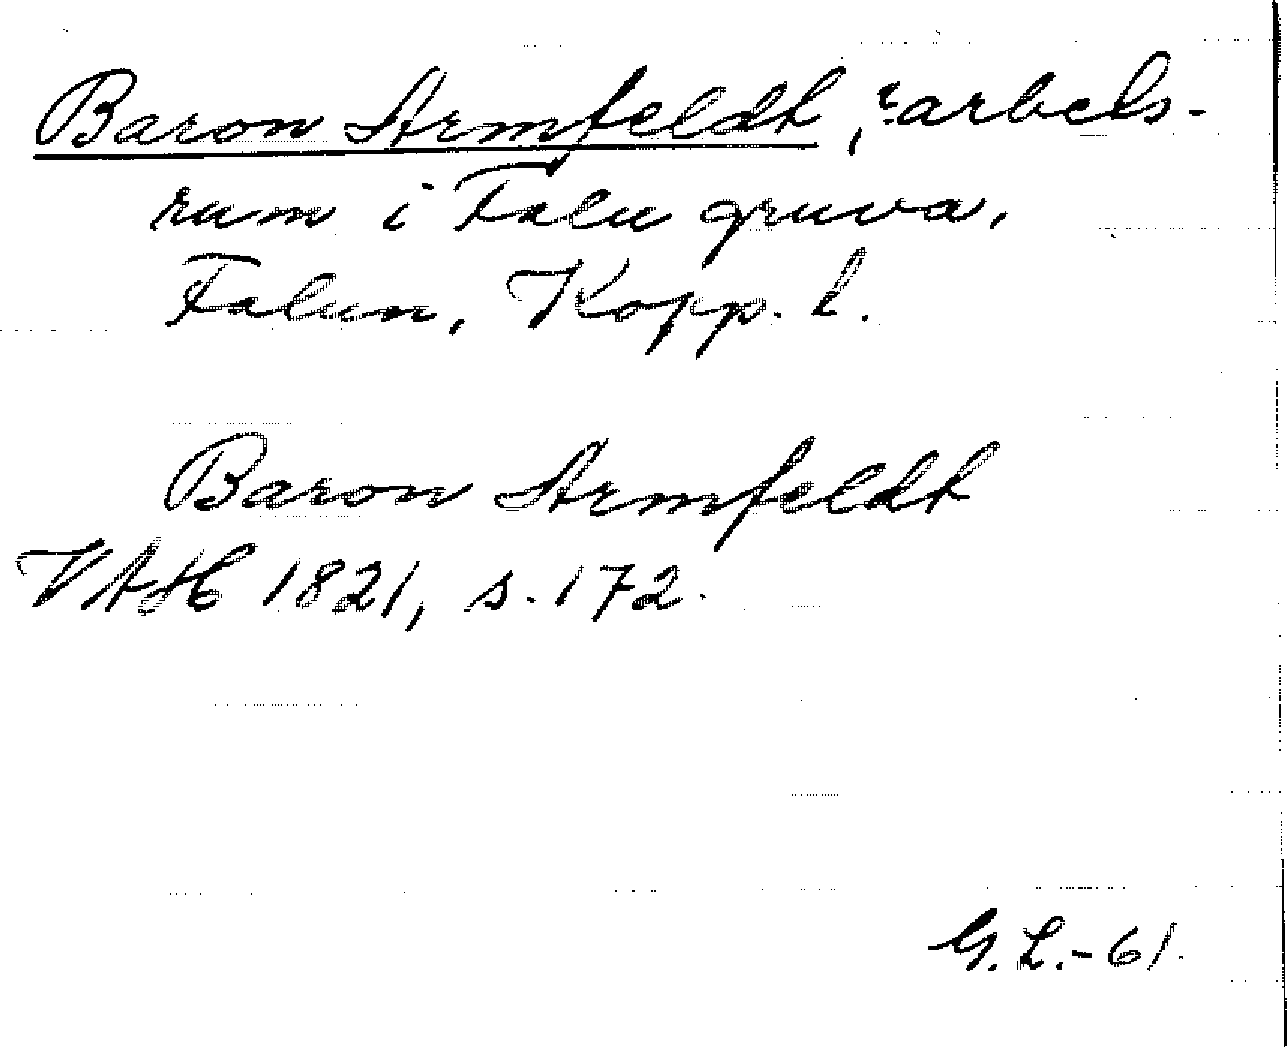 Baron Armfeldt, ? arbets-
rum i Falu gruva,
Falun, Kopp. l.
Baron Armfeldt
VAH 1821, s. 172.
G. L. - 61.